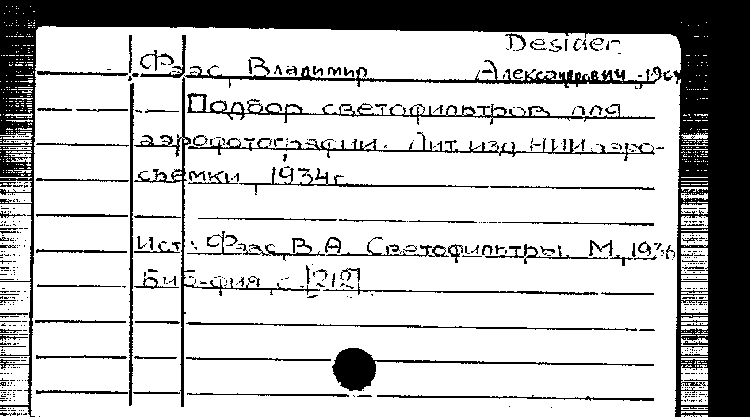 Desider.
Фаас, Владимир Александрович, -1964
Подбор светофильтров для
аэрофотографии. Лит. изд. НИИ аэро-
съемки, 1934г.
Ист.: Фаас, В.А. Светофильтры. М., 1936
Биб-фия, с. [212]